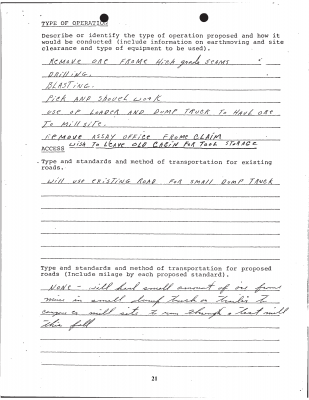 TYPE OF OPERATION
Describe or identify the type of operation proposed and how it
would be conducted (include information on earthmoving and site
clearance and type of equipment to be used).
REMOVE ORE FROME HIGH grade SEAMS
DRILLING.
BLASTING.
PICK AND SHOVEL WORK
USE OF LOADER AND DUMP TRUCK TO HAUL ORE
TO MILL SITE.
REMOVE ASSAY OFFICE FROME CLAIM
WISH TO LEAVE OLD CABIN FOR TOOL STORAGE
ACCESS
Type and standards and method of transportation for existing
roads.
WILL USE EXISTING ROAD FOR SMALL DUMP TRUCK
Type and standards and method of transportation for proposed
roads (Include milage by each proposed standard).
NONE - will haul small amount of ore from
mine in small dump truck or trailer to
mill site to run through a test mill
this fall
21